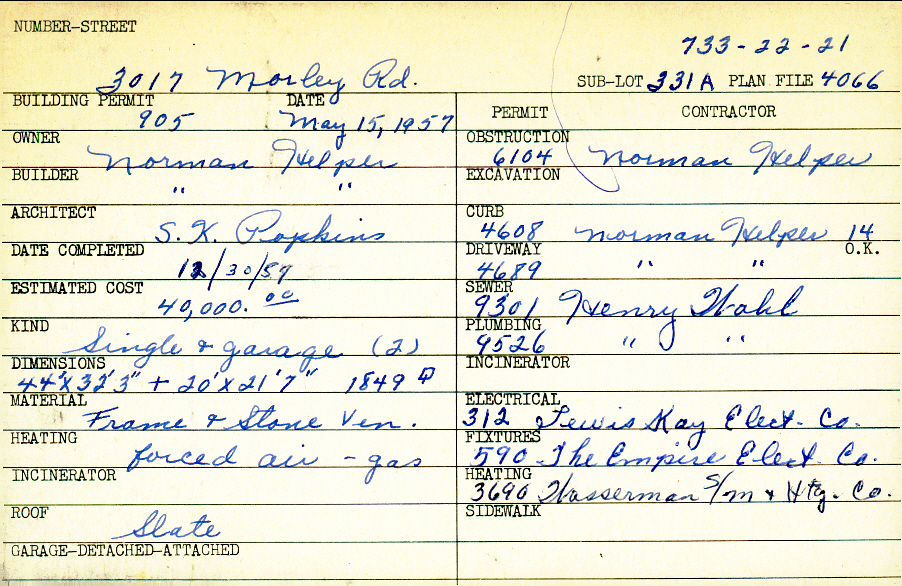 NUMBER-STREET
733-22-21
3017 Morley Rd. SUB-LOT 331A PLAN FILE 4066
BUILDING PERMIT DATE PERMIT CONTRACTOR
905 May 15, 1957
OWNER OBSTRUCTION
Norman Helper 6104 Norman Helper
BUILDER EXCAVATION
" "
ARCHITECT CURB
S. K. Popkins 4608 Norman Helper 14
DATE COMPLETED DRIVEWAY O.K.
12/30/57 4689 " "
ESTIMATED COST SEWER
40,000.00 9301 Henry Wohl
KIND PLUMBING
Single & garage (2) 9526 " "
DIMENSIONS INCINERATOR
44'X32'3" + 20'X21'7" 1849
MATERIAL ELECTRICAL
Frame & Stone Ven. 312 Lewis Kay Elect. Co.
HEATING FIXTURES
forced air - gas 590 The Empire Elect. Co.
INCINERATOR HEATING
3690 Wasserman S/m & Htg. Co.
ROOF SIDEWALK
Slate
GARAGE-DETACHED-ATTACHED